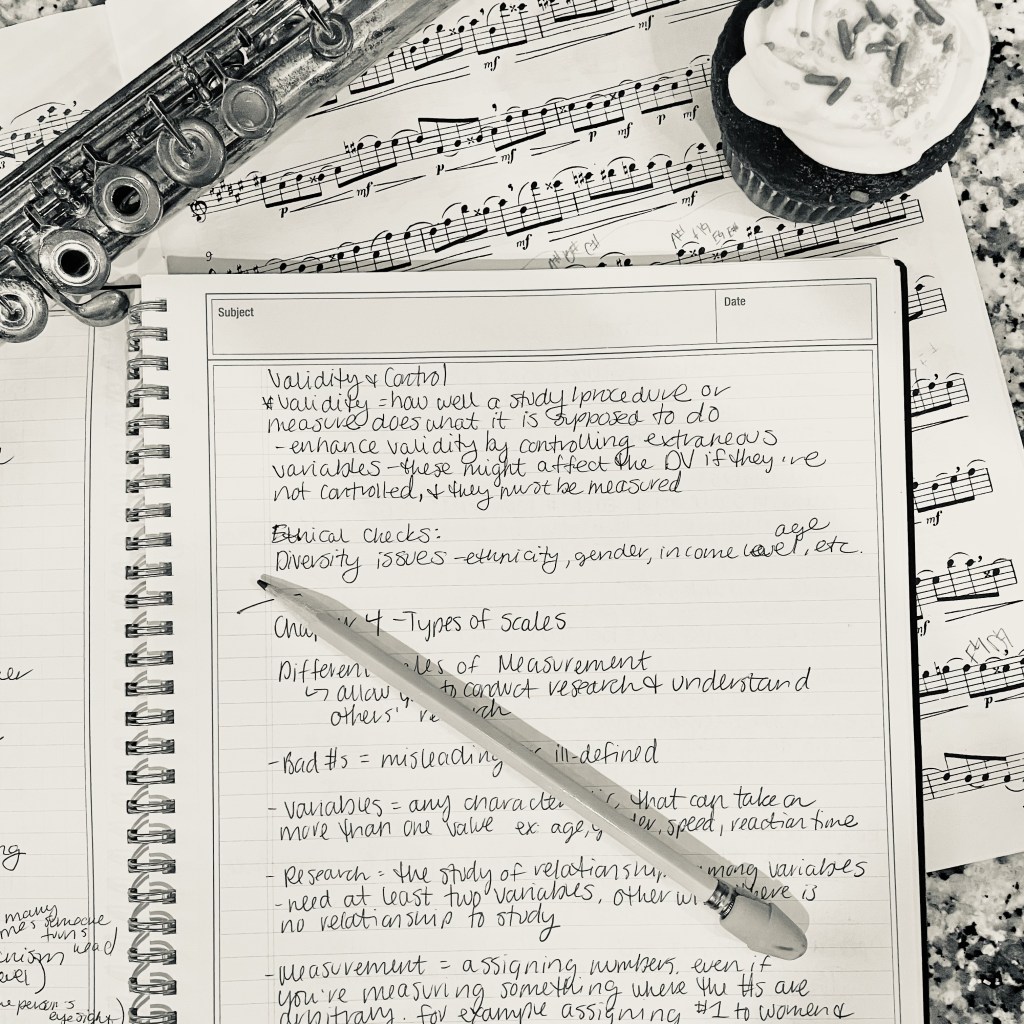 Subject
Date
Validity & Control
* Validity = how well a study/procedure or
measure does what it is supposed to do
- enhance validity by controlling extraneous
variables - these might affect the DV if they're
not controlled, & they must be measured
Ethical Checks:
age
Diversity issues - ethnicity, gender, income level, etc.
4 - Types of Scales
of Measurement
↳ allow to conduct research & understand
others'
- Bad #s = misleading ill-defined
- Variables = any that can take on
more than one value ex: age, speed, reaction time
- Research = the study of relationships among variables
- need at least two variables, other there is
no relationship to study
- Measurement = assigning numbers, even if
you're measuring something where the #s are
arbitrary. for example assigning #1 to women &
many
someone
turns
head
person's
eyesight)
9